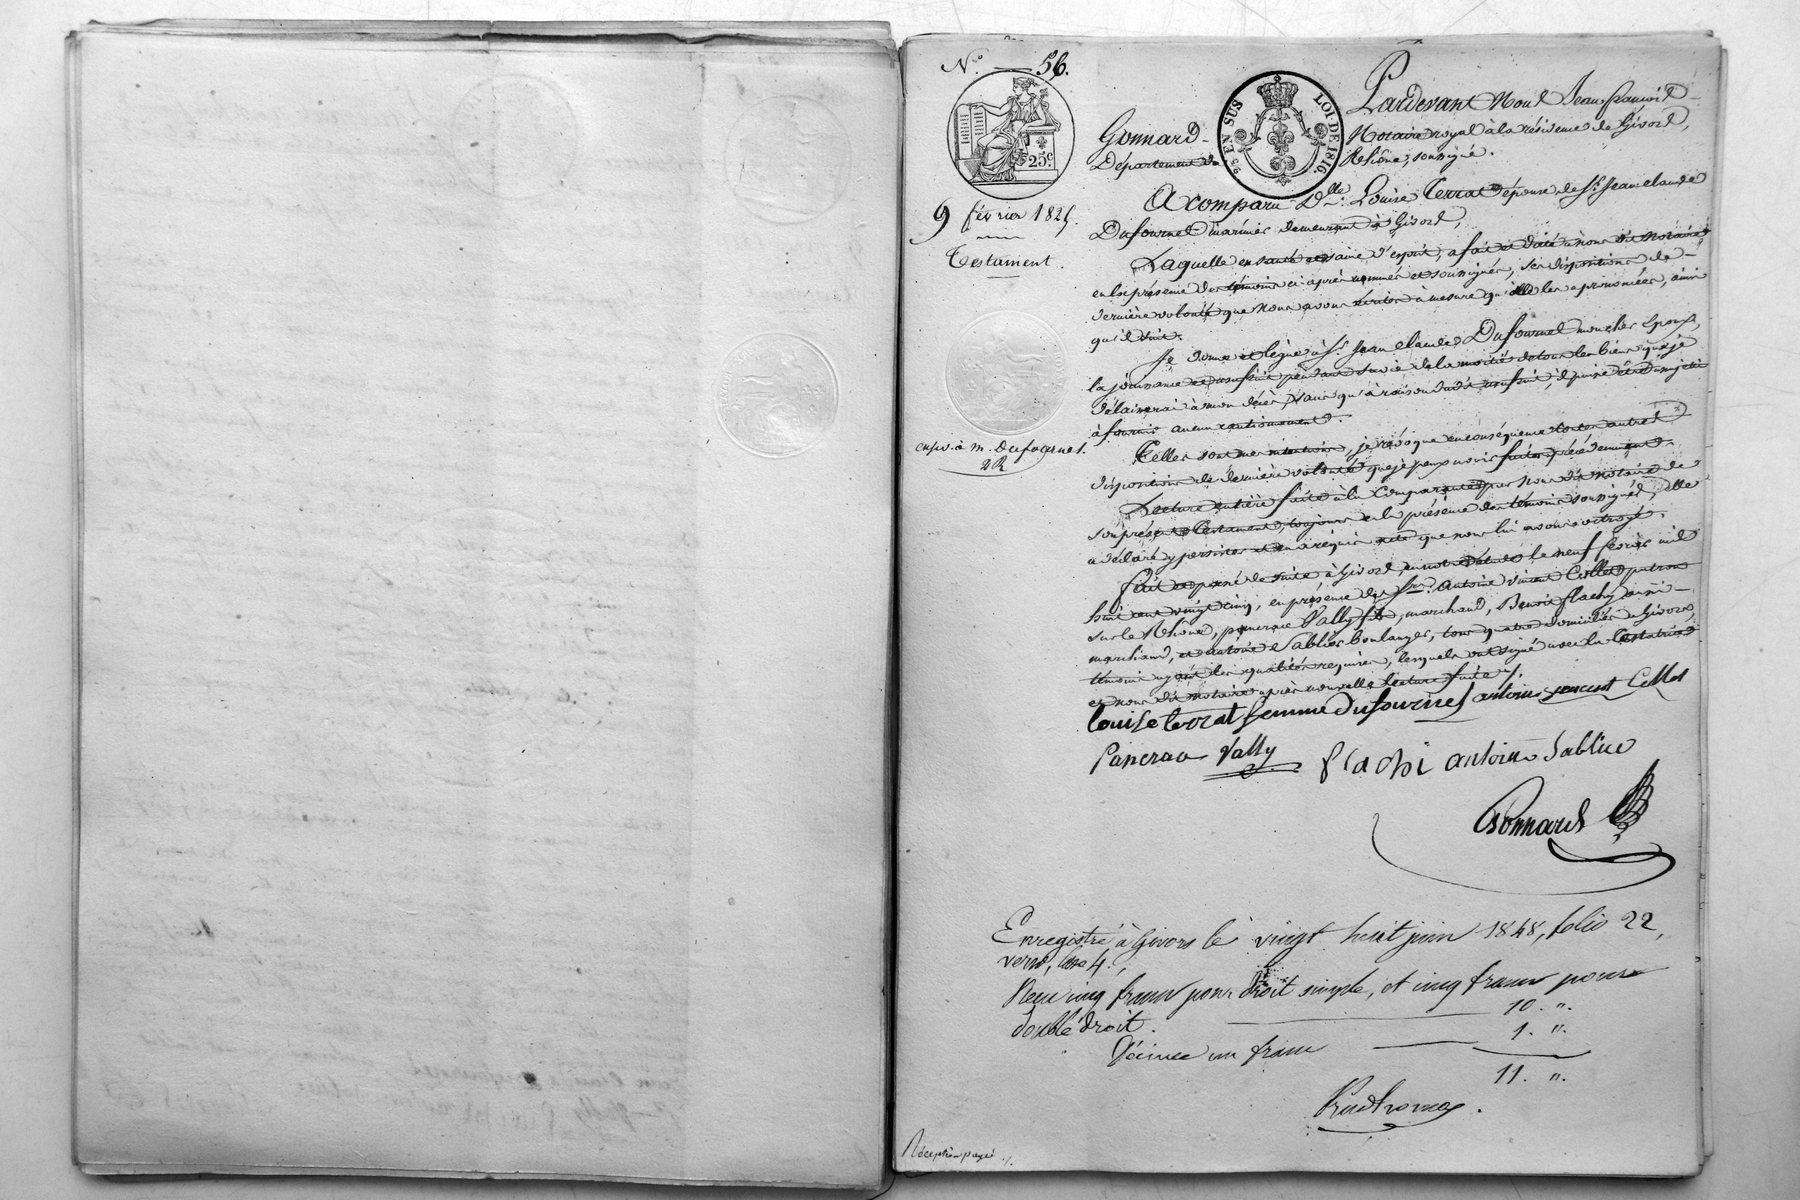 N.° 56.
25c
9 février 1825.
Testament.
exp. à m. Dufournel.
2 R
9.3 EN SUS LOI DE 1816.
Pardevant Nous Jean françois
Gonnard Notaire royal à la résidence de Givors,
Département du Rhône, soussigné.
A comparu D.lle Louise Terrat épouse de Sr. Jean claude
Dufournel marinier demeurant à Givors,
Laquelle en santé et saine d'esprit, a fait et dicté à nous dit Notaire
en la présence des témoins ci-après nommés et soussignés, ses dispositions de
dernière volonté que nous avons écrites à mesure qu'elle les a prononcées, ainsi
qu'il suit.
Je donne et lègue à Sr. Jean claude Dufournel mon cher époux,
la jouissance et usufruit pendant sa vie de la moitié de tous les biens que je
délaisserai à mon décès, sans qu'à raison dudit usufruit, il puisse être assujetti
à fournir aucun cautionnement.
Telles sont mes intentions, je révoque en conséquence toutes autres
dispositions de dernière volonté que je peux avoir faites précédemment.
Lecture entière faite à la Comparante par nous dit notaire de
son présent Testament, toujours en la présence des témoins soussignés, elle
a déclaré y persister et en a requis acte que nous lui avons octroyé.
fait et passé de suite à Givors, en notre étude le neuf février mil
huit cent vingt cinq, en présence des Srs. Antoine vincent Collet patron
sur le Rhône, pancrace Vally fils, marchand, Benoit flachy aussi
marchand, et antoine Sablier boulanger, tous quatre domiciliés à Givors,
témoins ayant les qualités requises, lesquels ont signé avec la testatrice
et nous dit notaire après nouvelle lecture faite ./.
louise terrat femme dufournel antoine vencent Collet
Pancrace Vally flachi antoine Sablier
Gonnard
Enregistré à Givors le vingt huit juin 1848, folio 22,
verso, case 4.
Reçu cinq francs pour droit simple, et cinq francs pour
double droit. 10. "
Décime un franc 1. "
11. "
Prudhomme.